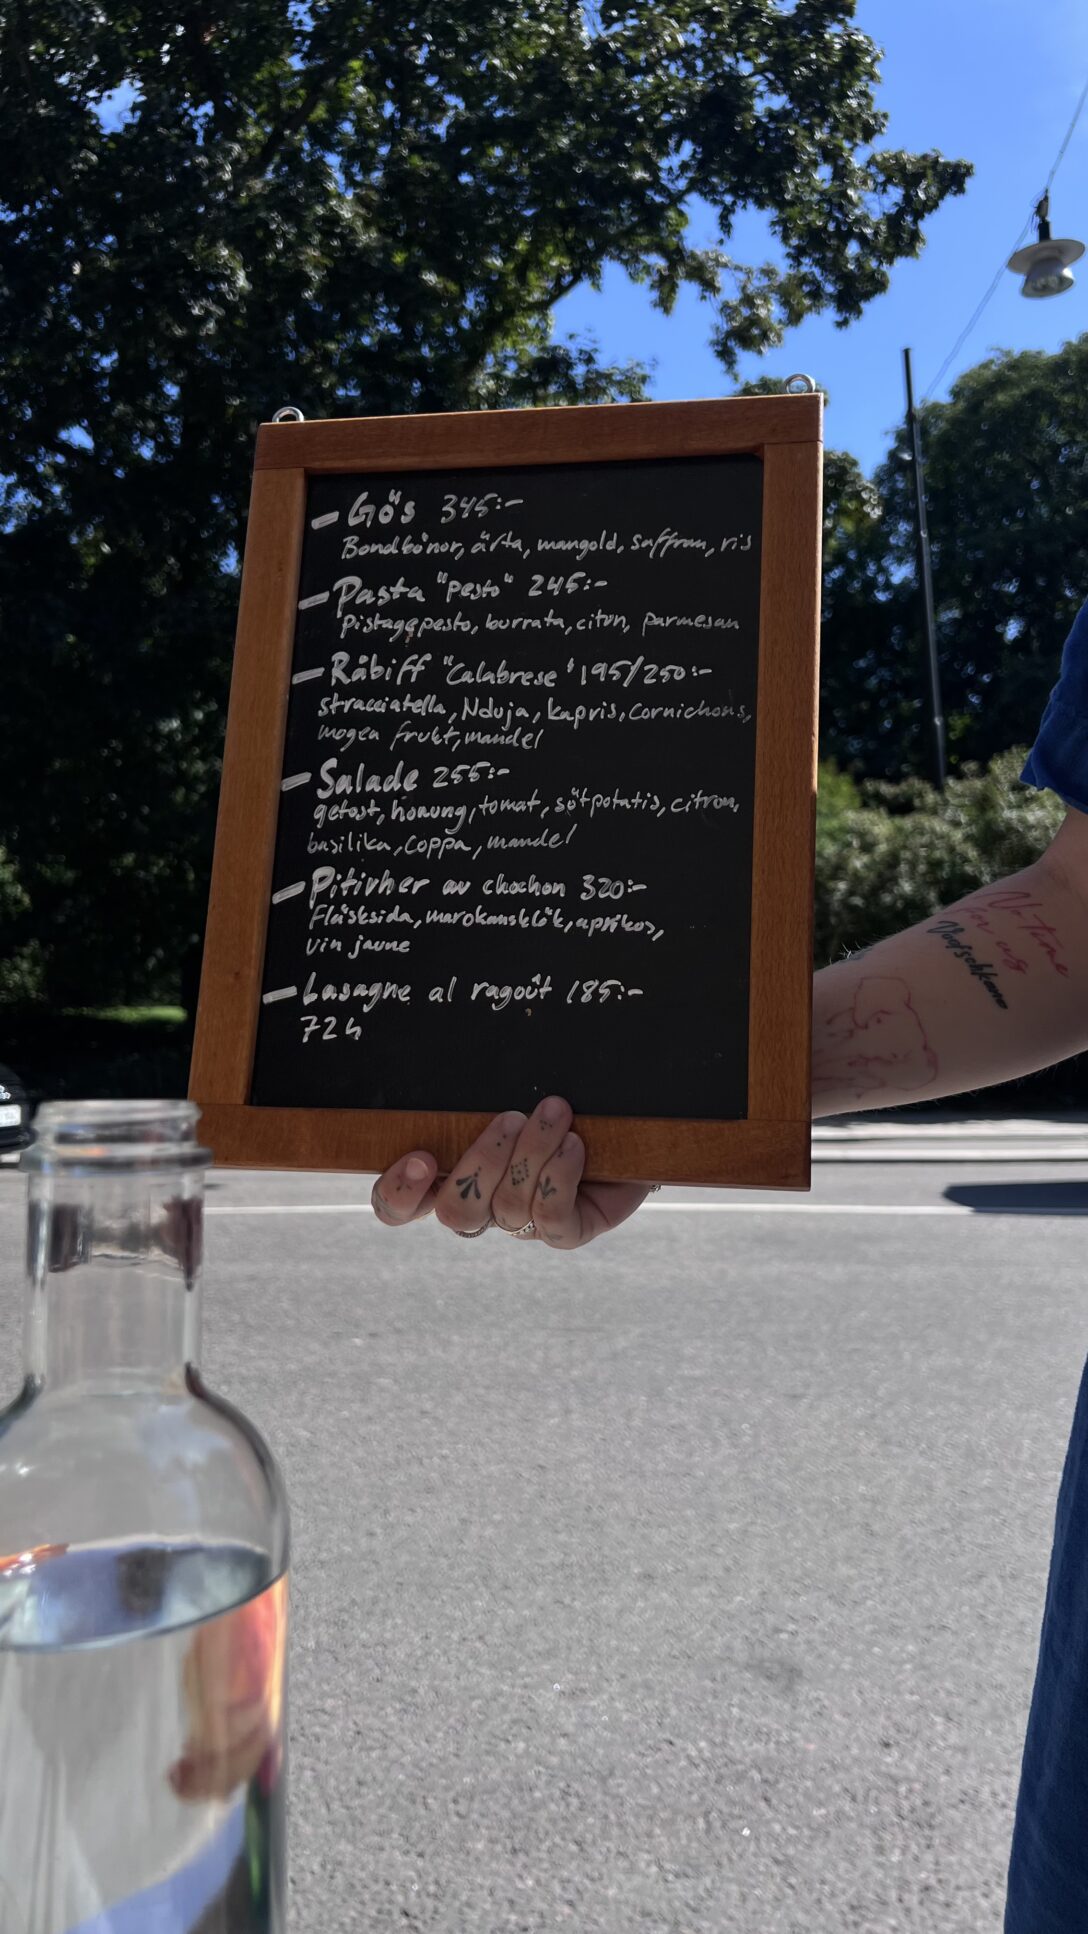 - Gös 345:-
Bondbönor, ärta, mangold, saffran, ris
- Pasta "pesto" 245:-
Pistagepesto, burrata, citron, parmesan
- Råbiff "Calabrese" 195/250:-
stracciatella, Nduja, kapris, cornichons,
mogen frukt, mandel
- Salade 255:-
getost, honung, tomat, sötpotatis, citron,
basilika, coppa, mandel
- Pitivher av chochon 320:-
Fläsksida, marokansklök, aprikos,
vin jaune
- Lasagne al ragoût 185:-
72h
No time
for